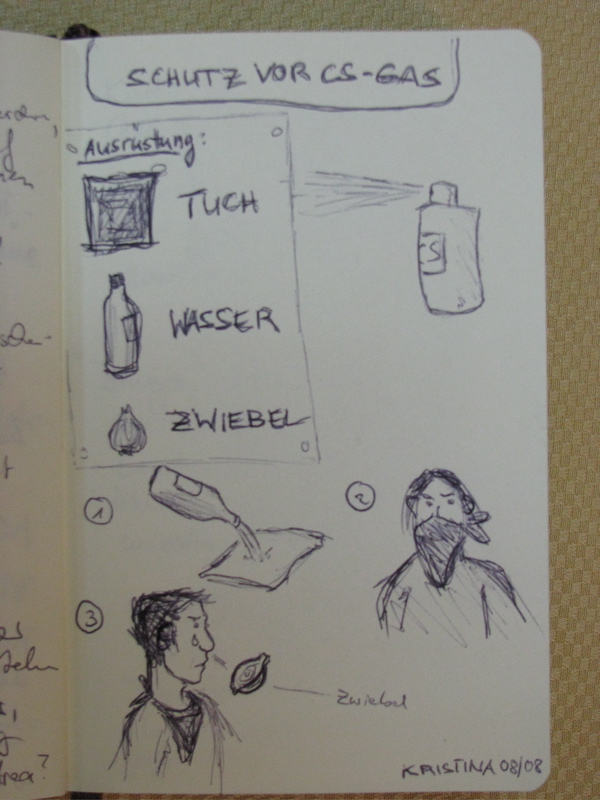 SCHUTZ VOR CS-GAS
Ausrüstung:
TUCH
CS
WASSER
ZWIEBEL
1
2
3
Zwiebel
KRISTINA 08/08